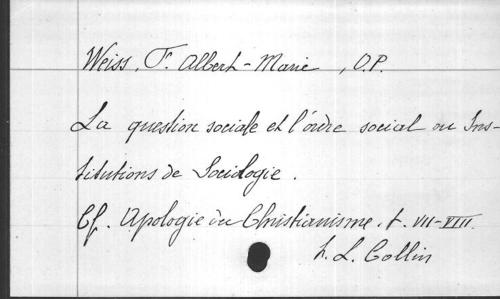 Weiss, F. Albert-Marie, O.P.
La question sociale et l'ordre social ou Ins-
titutions de Sociologie.
Cf. Apologie du Christianisme. t. VII-VIII.
L. Collin